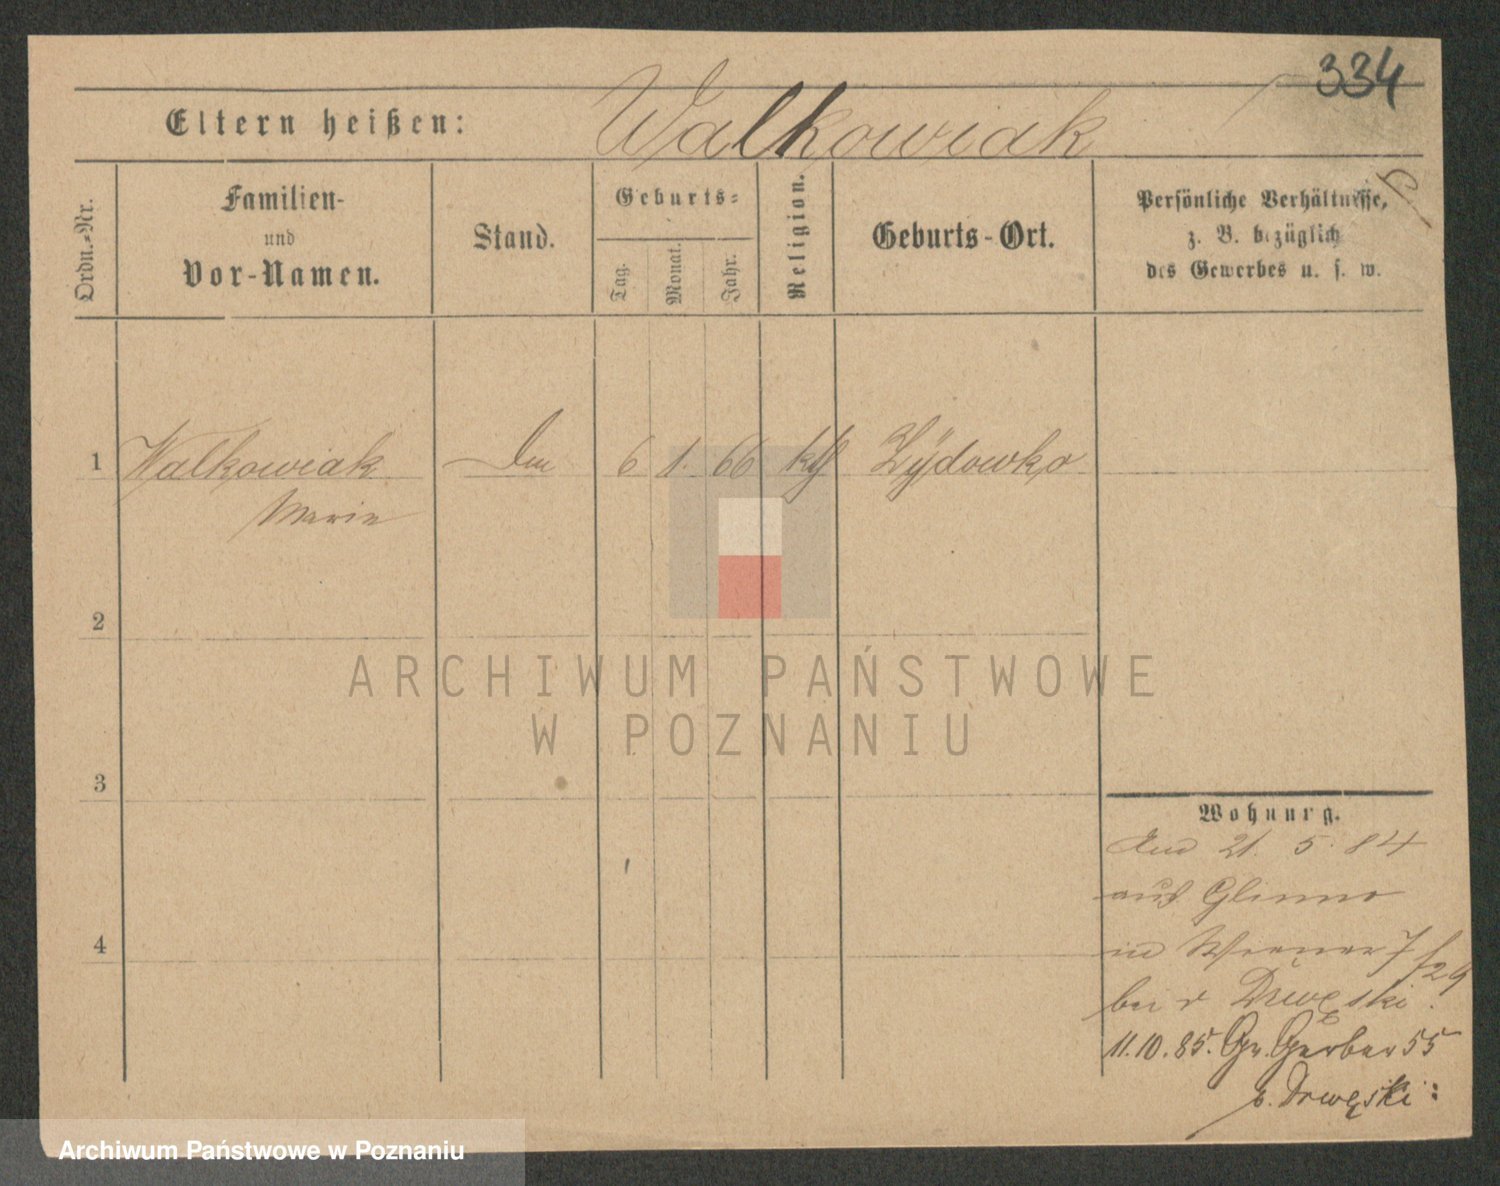 334
Eltern heißen: Walkowiak
Ordn.-Nr.
Familien-
und
Vor-Namen.
Stand.
Geburts-
Tag.
Monat.
Jahr.
Religion.
Geburts-Ort.
Persönliche Verhältnisse,
z. B. bezüglich
des Gewerbes u. s. w.
1 Walkowiak 6 1. 66 kth Zydowko
Marie
2
3
4
ARCHIWUM PAŃSTWOWE
W POZNANIU
Wohnung.
21. 5. 84
aus Glinno
in Wronker
bei v Drwęski.
11.10.85. Gr. Gerber 55
b. Drwęski:
Archiwum Państwowe w Poznaniu